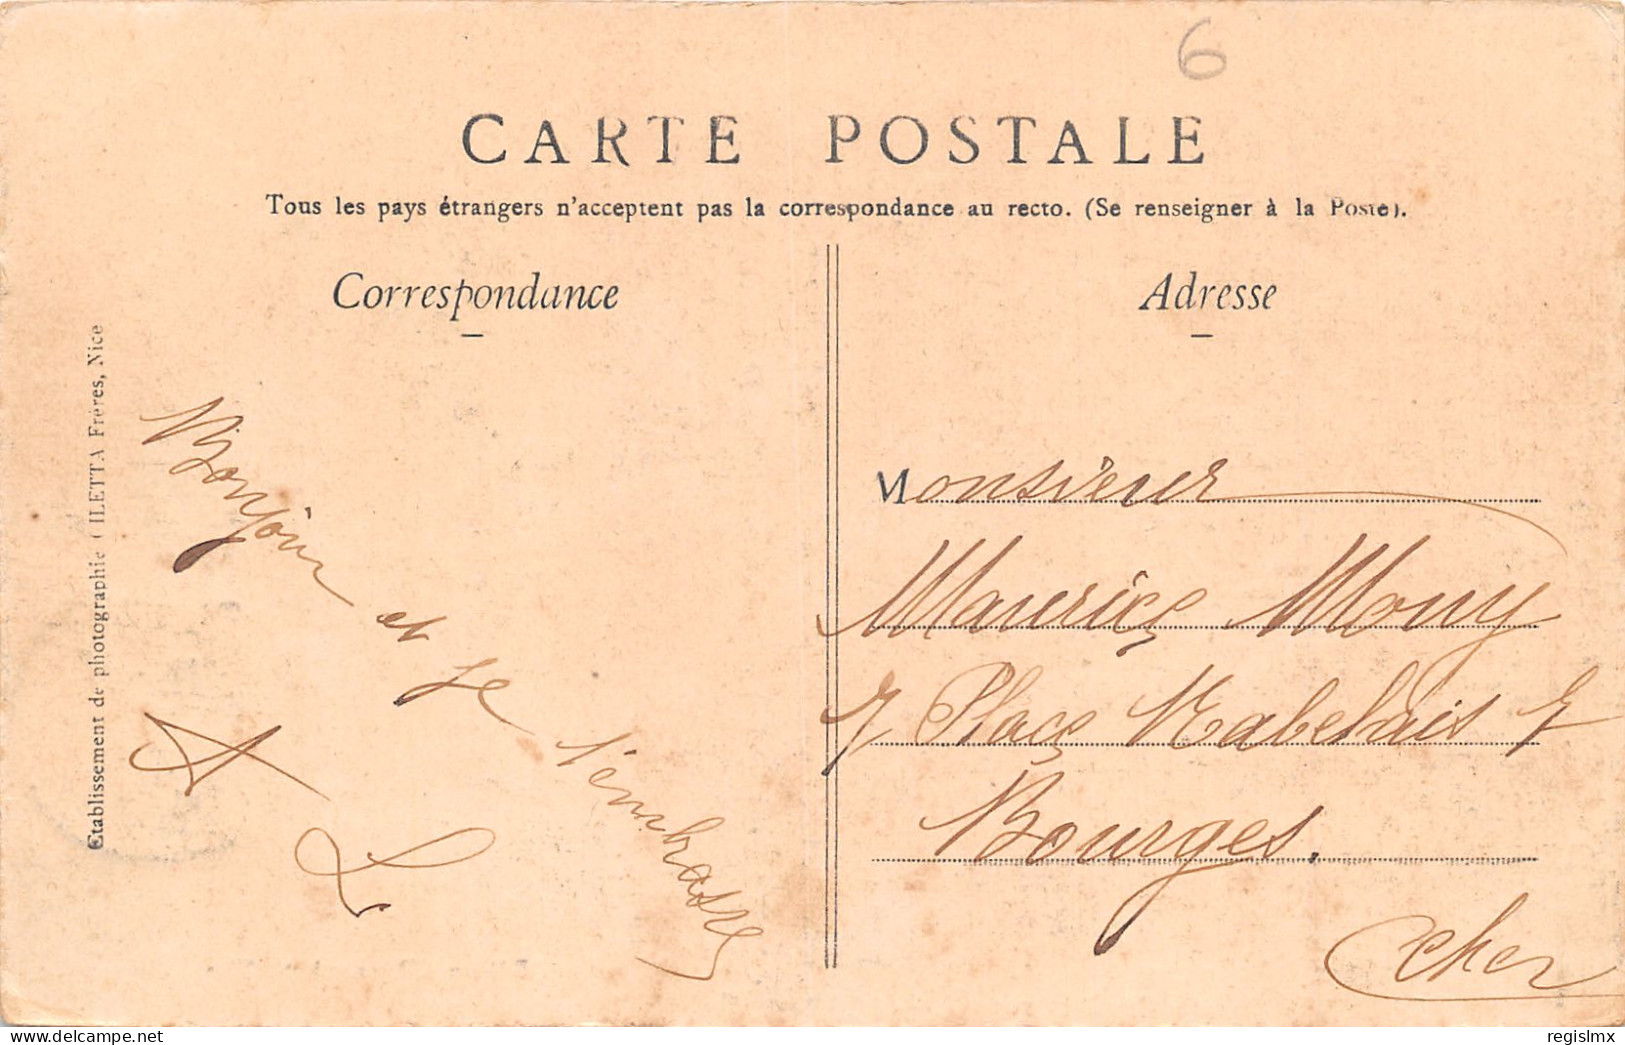 6
CARTE POSTALE
Tous les pays étrangers n'acceptent pas la correspondance au recto. (Se renseigner à la Poste).
Correspondance
Adresse
Etablissement de photographie GILETTA Frères, Nice
Bonjour et Je t'embrasse
A L
Monsieur
Maurice Mony
7 Place Rabelais 7
Bourges.
Cher
delcampe.net
regislmx